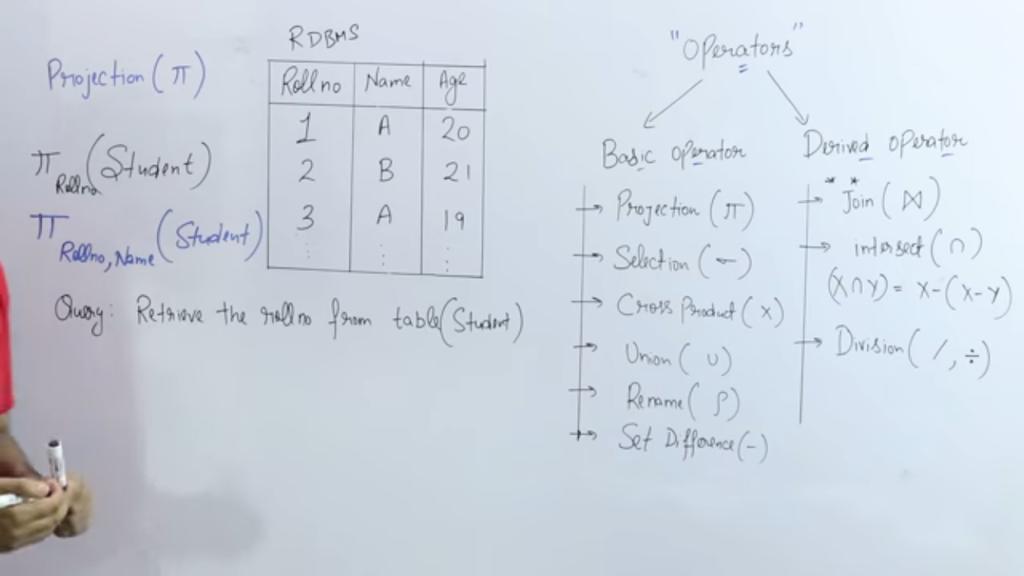 Projection (π)
π Rollno (Student)
π Rollno, Name (Student)
RDBMS
Rollno Name Age
1 A 20
2 B 21
3 A 19
⋮ ⋮ ⋮
Query: Retrieve the rollno from table (Student)
"Operators"
Basic operator
→ Projection (π)
→ Selection (σ)
→ Cross Product (X)
→ Union (∪)
→ Rename (ρ)
→ Set Difference (-)
Derived operator
→ * Join * (⋈)
→ intersect (∩)
(X∩Y) = X-(X-Y)
→ Division (/, ÷)